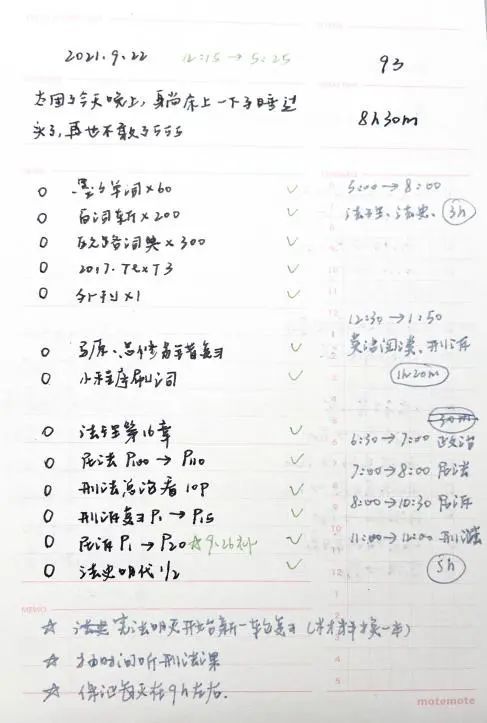 2021.9.22
12:15→5:25
93
太困了今天晚上，身尚床上一下子睡过
头了，再也不敢了55555
8h30m
墨墨单词×60 ✓
百词斩×200 ✓
词典×300 ✓
2017.Text3 ✓
外刊×1 ✓
马原、总复习 ✓
小程序刷词 ✓
法理第16章 ✓
民法 P100→P110 ✓
刑法总论看10P ✓
刑诉复习P1→P15 ✓
民诉P1→P20 ☆9.26补 ✓
法史明代1/2 ✓
5:00→8:00
法理、法史、3h
12:30→1:50
英语阅读、刑诉
1h20m
30m
6:30→7:00 政治
7:00→8:00 民法
8:00→10:30 民诉
11:00→12:00 刑法
5h
MEMO
☆ 宪法明天开始新一轮复习（换一本）
☆ 抽时间听刑法课
☆ 保证每天在9h左右.
motemote